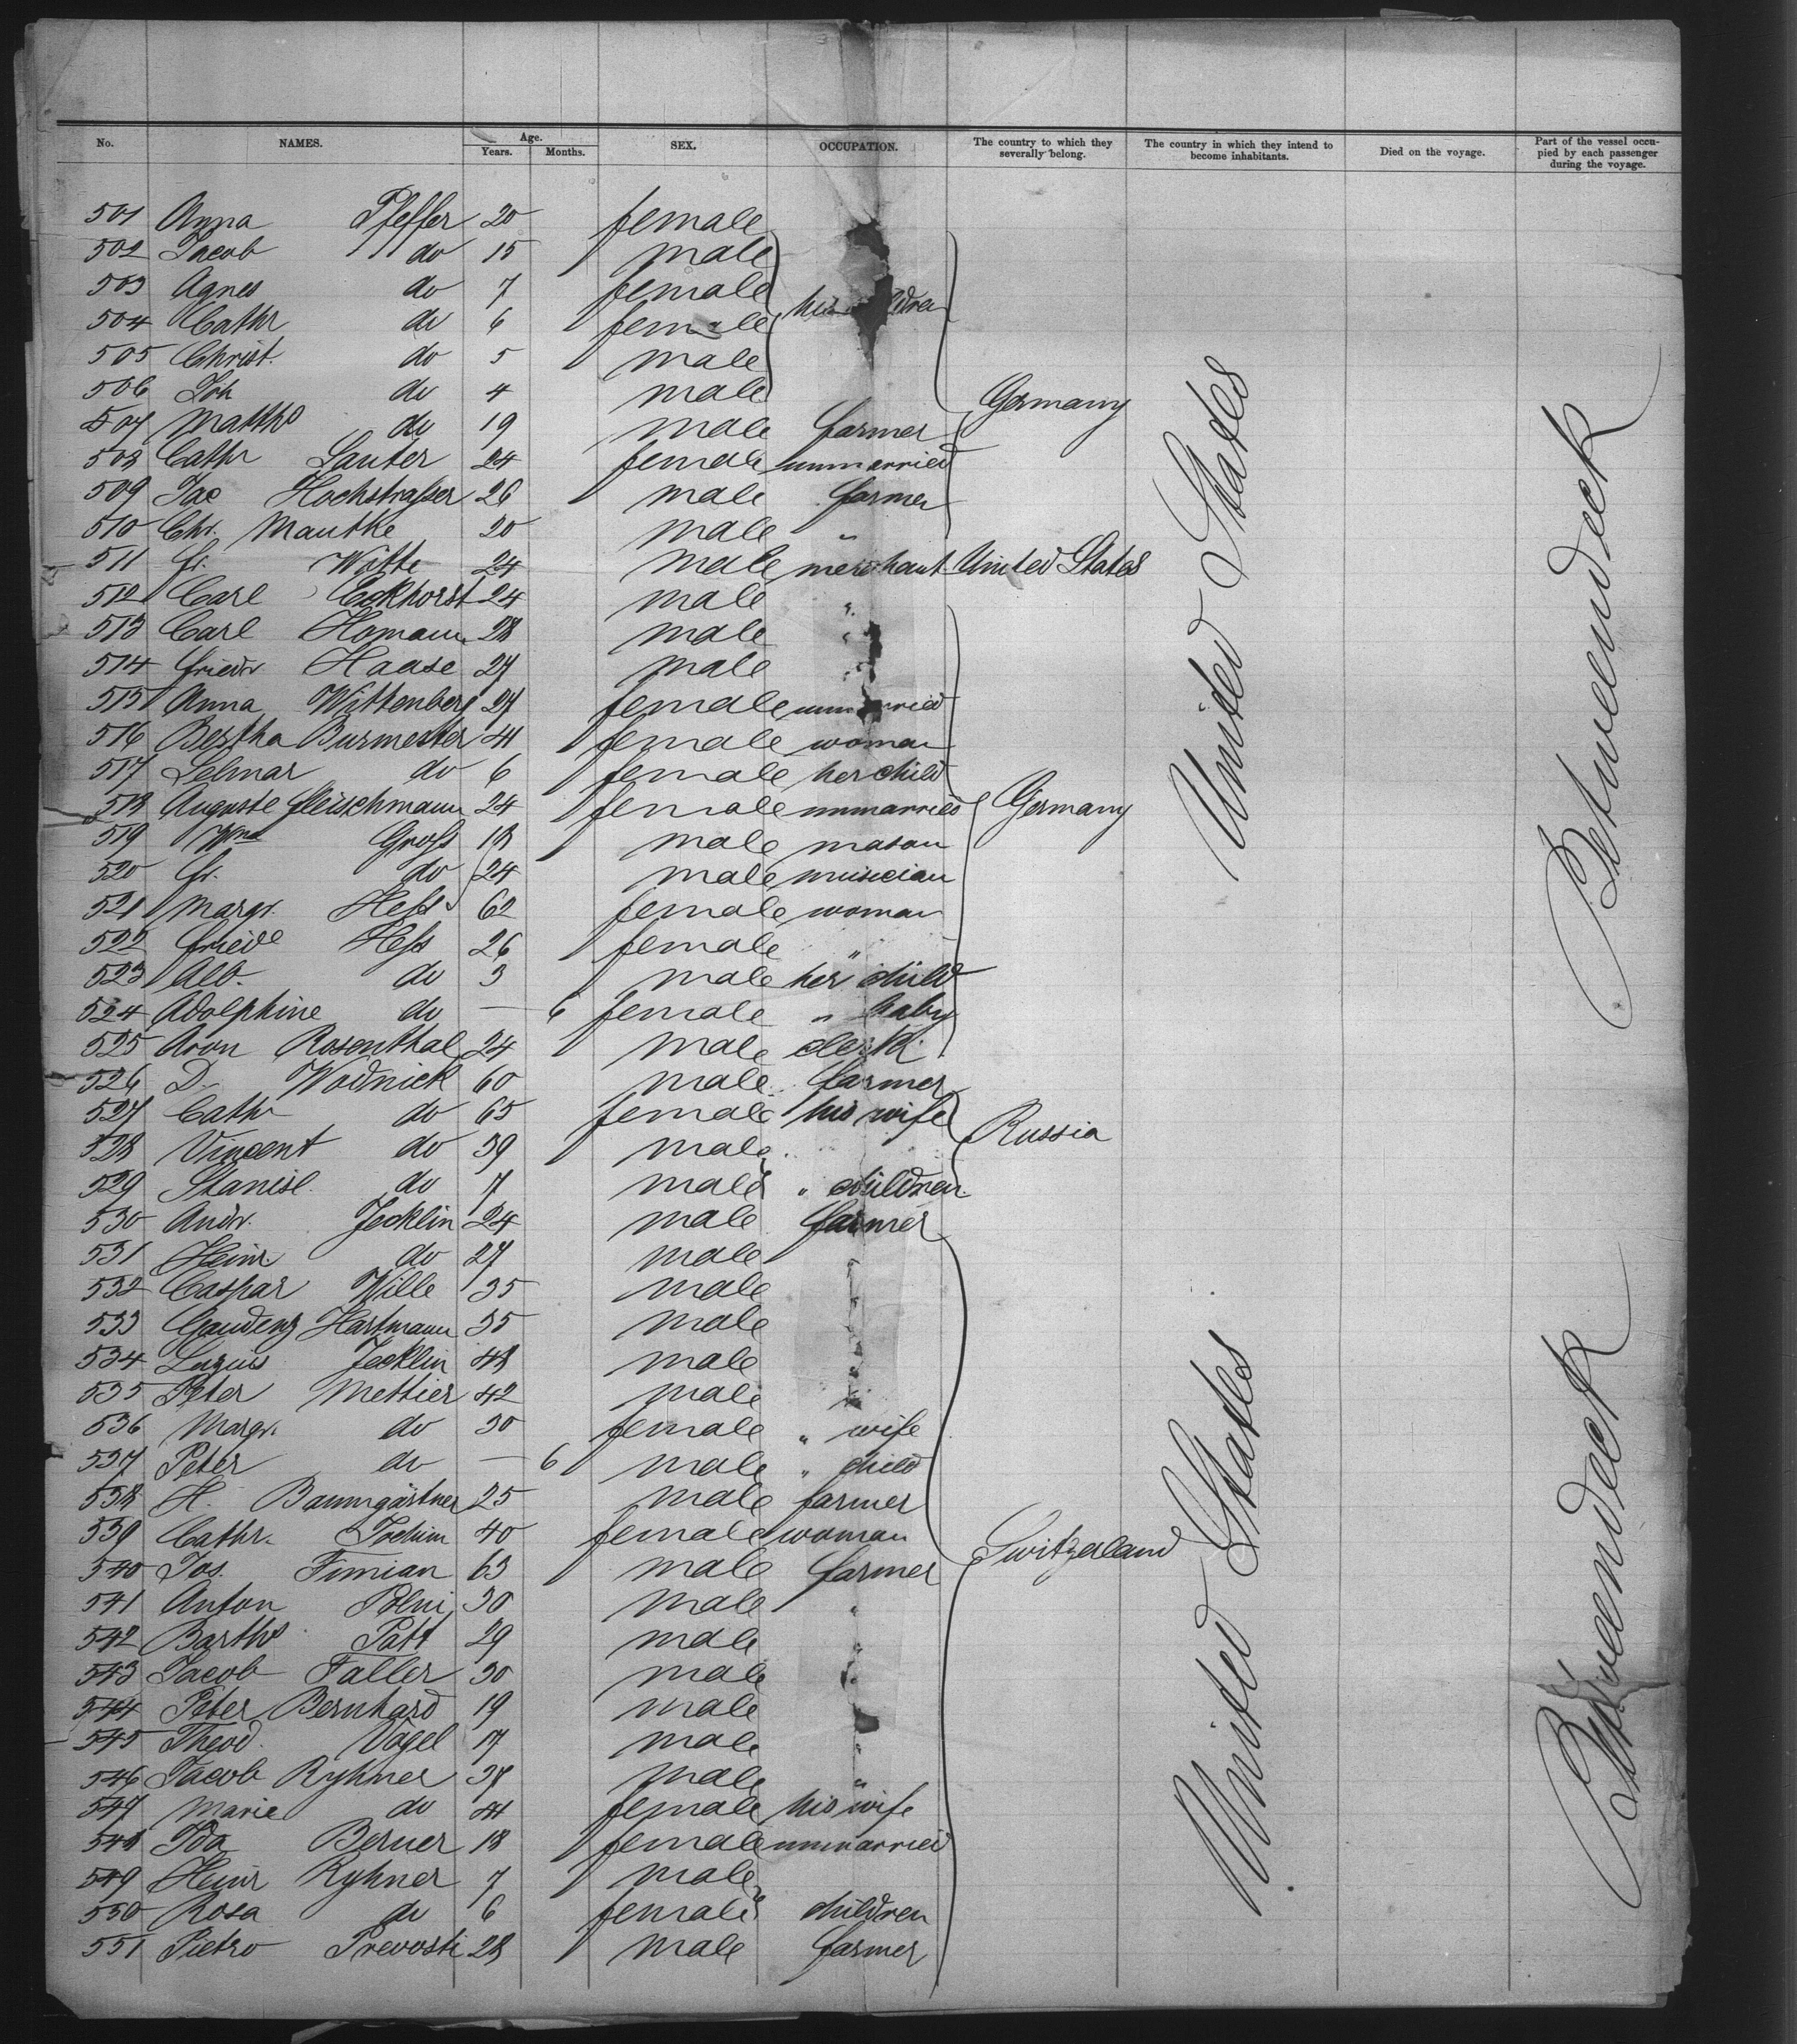 No. NAMES. Age. Years. Months. SEX. OCCUPATION. The country to which they severally belong. The country in which they intend to become inhabitants. Died on the voyage. Part of the vessel occupied by each passenger during the voyage.
501 Anna Pfeffer 20 female
502 Jacob do 15 male
503 Agnes do 7 female
504 Cathr do 6 female his children
505 Christ. do 5 male
506 Joh do 4 male Germany
507 Matths do 19 male farmer
508 Cathr Lauter 24 female unmarried
509 Jac Hochstrasser 26 male farmer
510 Chr. Mautke 20 male "
511 Fr. Witte 24 male merchant United States
512 Carl Eckhorst 24 male "
513 Carl Homann 28 male "
514 Friedr Haase 27 male "
515 Anna Wittenberg 27 female unmarried
516 Bertha Burmester 41 female woman
517 Selmar do 6 female her child
518 Auguste Fleischmann 24 female unmarried Germany
519 Wm Gross 18 male mason
520 Fr. do 24 male musician
521 Margr. Hess 62 female woman
522 Friede Hess 26 female "
523 Alb. do 3 male her child
524 Adolphine do — 6 female " baby
525 Aron Rosenthal 24 male clerk
526 D. Wodnick 60 male farmer
527 Cathr do 65 female his wife Russia
528 Vincent do 39 male
529 Stanisl. do 7 male " children
530 Andr. Jecklin 24 male farmer
531 Heinr. do 27 male "
532 Caspar Wille 35 male "
533 Gaudenz Hartmann 35 male "
534 Luzius Jecklin 48 male "
535 Peter Mettier 42 male "
536 Margr. do 30 female " wife
537 Peter do — 6 male " child
538 H. Baumgärtner 25 male farmer
539 Cathr. Jochim 40 female woman Switzerland
540 Jos. Fimian 63 male farmer
541 Anton 30 male "
542 Barths Patt 29 male "
543 Jacob Faller 30 male "
544 Peter Bernhard 19 male "
545 Theod. Vogel 17 male "
546 Jacob Ryhner 37 male "
547 Marie do 41 female his wife
548 Ida Berner 18 female unmarried
549 Heinr Ryhner 7 male
550 Rosa do 6 female children
551 Pietro Prevosti 28 male farmer
United States
United States
Betweendeck
Betweendeck